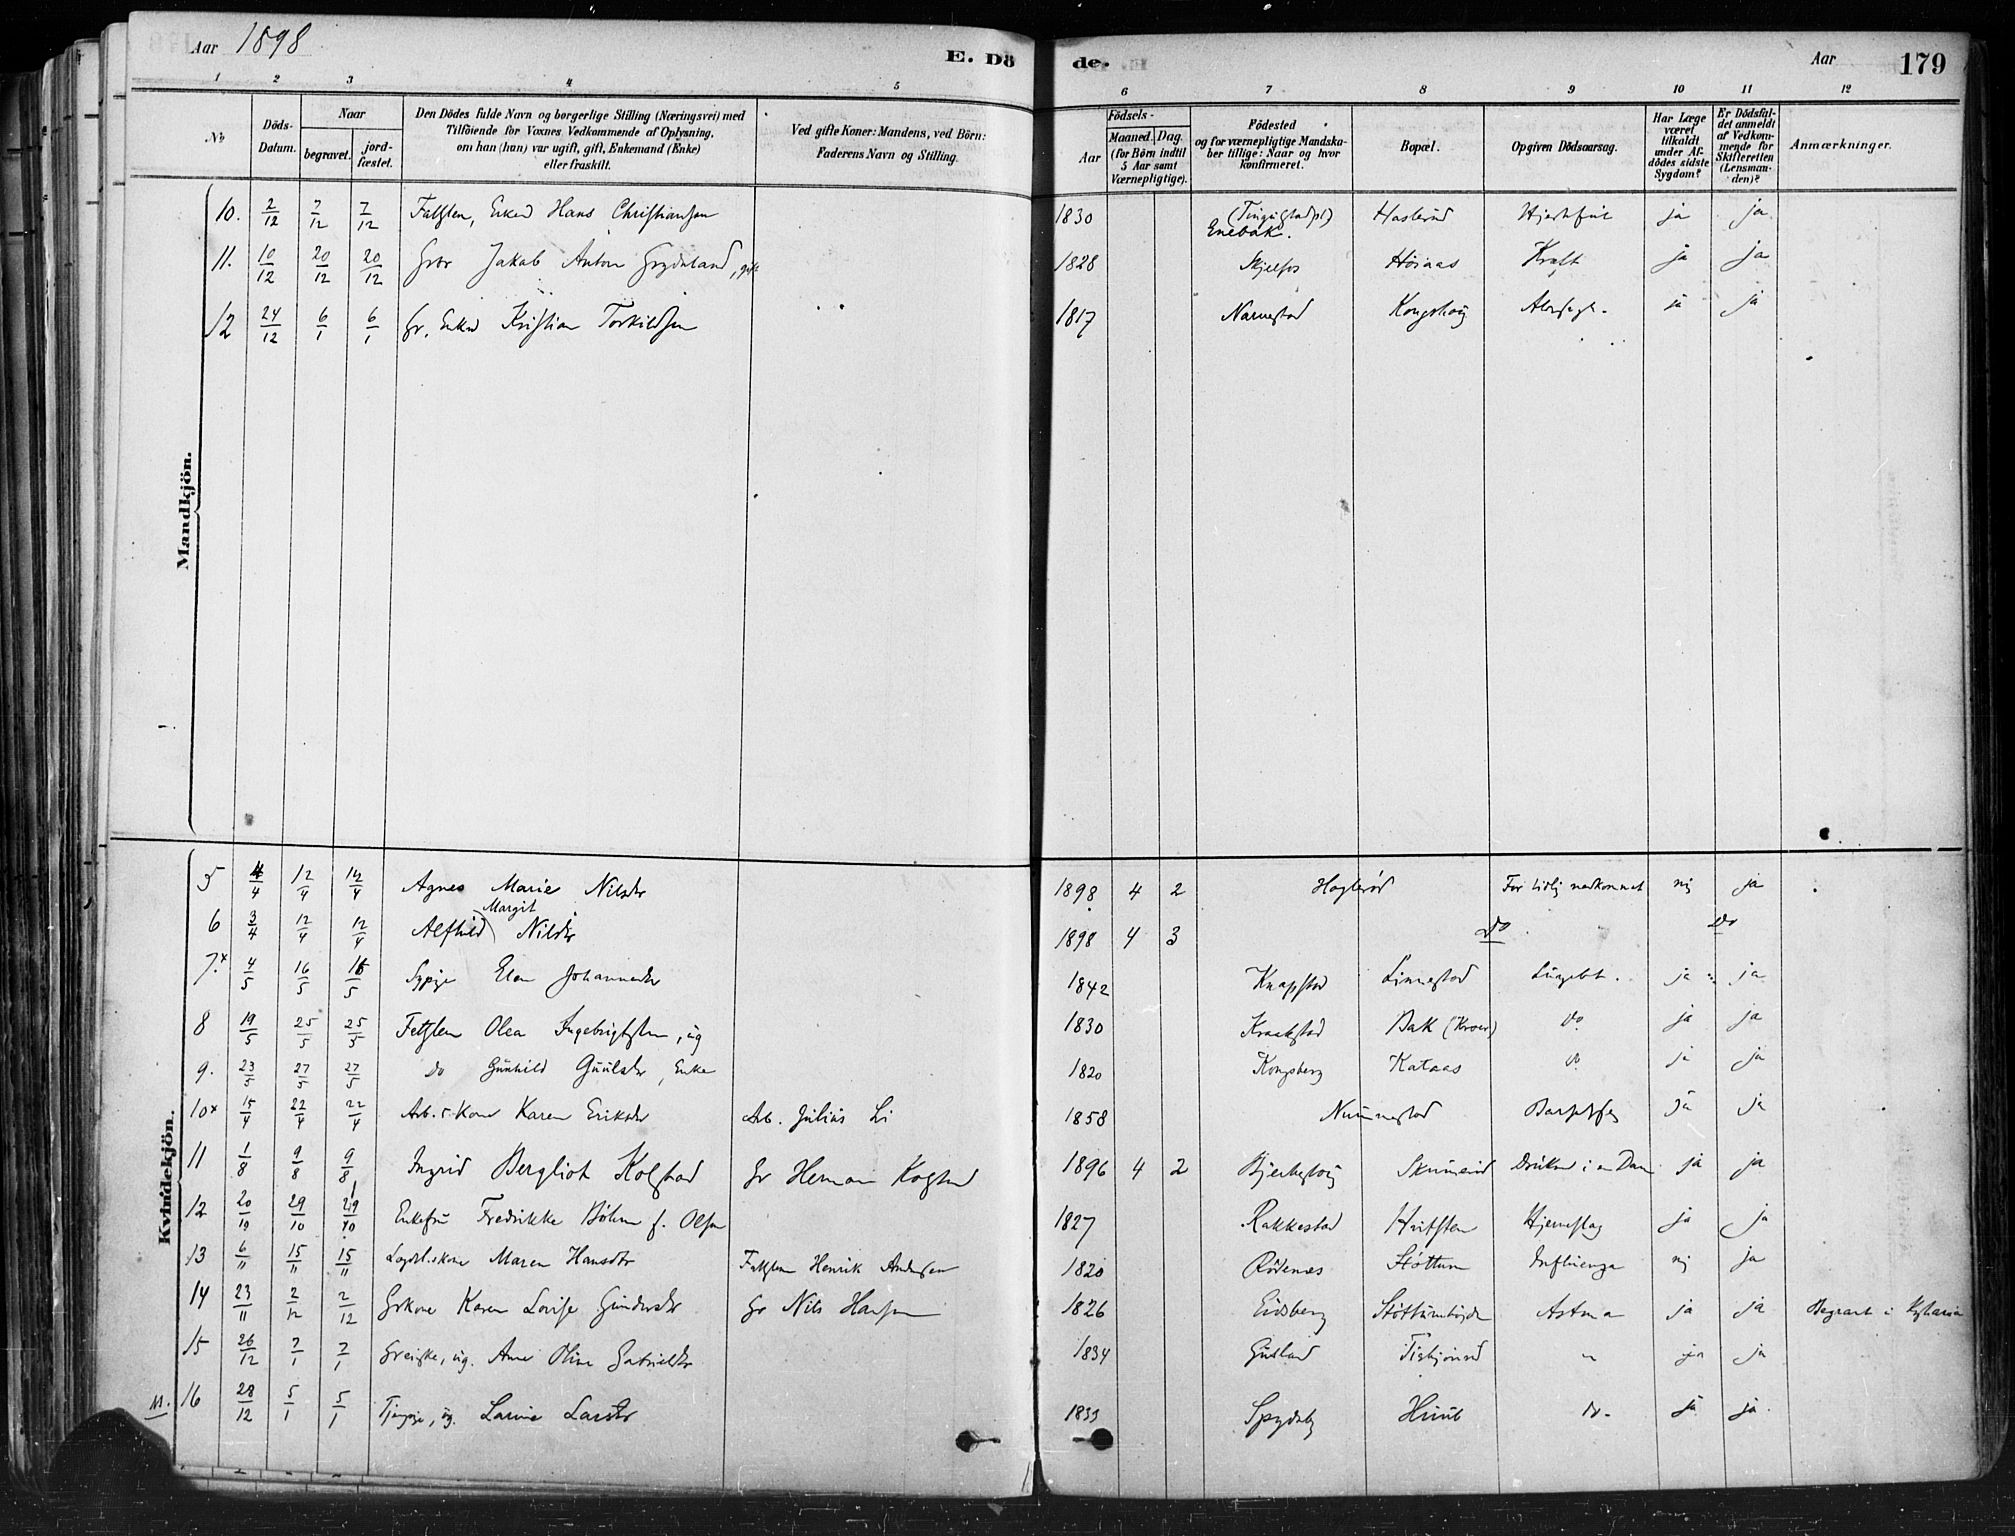 Aar 1898 E. Dö de. Aar 179
1 2 3 4 5 6 7 8 9 10 11 12
No
Döds-Datum.
Naar
begravet.
jord-fæstet.
Den Dödes fulde Navn og borgerlige Stilling (Næringsvei) med
Tilföiende for Voxnes Vedkommende af Oplysning,
om han (hun) var ugift, gift, Enkemand (Enke)
eller fraskilt.
Ved gifte Koner: Mandens, ved Börn:
Faderens Navn og Stilling.
Födsels-
Aar
Maaned. Dag.
(for Börn indtil
5 Aar samt
Værnepligtige).
Födested
og for værnepligtige Mandska-
ber tillige: Naar og hvor
konfirmeret.
Bopæl.
Opgiven Dödsaarsag.
Har Læge
været
tilkaldt
under Af-
dödes sidste
Sygdom?
Er Dödsfal-
det anmeldt
af Vedkom-
mende for
Skifteretten
(Lensman-
den)?
Anmærkninger.
Mandkjön.
10. 2/12 7/12 7/12 Hans Christiansen 1830 Enebak. Haslerud ja ja
11. 10/12 20/12 20/12 Gbr Jakob Anton Grydeland, gift 1828 Skjelfos Høiaas Kræft ja ja
12 24/12 6/1 6/1 Gr. Enkem Kristian Torkildsen 1817 Narvestad Kongshoug ja ja
Kvindekjön.
5 4/4 12/4 12/4 Agnes Marie Nilsdtr 1898 4 2 Haglerød For tidlig nedkommet nej ja
6 3/4 12/4 12/4 Alfhild Margit Nilsdtr 1898 4 3 Do Do
7.x 4/5 16/5 16/5 Elen Johannesdtr 1842 Knapstad Linnestad Lungebet. ja ja
8 19/5 25/5 25/5 Olea Ingebrigtsen, ug 1830 Kraakstad Bak (Kroer) do ja ja
9. 23/5 27/5 27/5 do Gunhild Guulsdtr, Enke 1820 Kongsberg Kataas do ja ja
10x 15/4 22/4 22/4 Arb.s Kone Karen Eriksdtr Arb. Julius Li 1858 Nunnestad ja ja
11 1/8 9/8 9/8 Ingrid Bergliot Kolstad Gr Herman Kolstad 1896 4 2 Druknet i en Dam ja ja
12 20/10 29/10 29/10 Enkefru Fredrikke Böhm f. Olsen 1827 Rakkestad Hvitsten Hjerneslag ja ja
13 6/11 15/11 15/11 Maren Hansdtr Henrik Andersen 1820 Rödenes Støttum Influenza nej ja
14 23/11 2/12 2/12 Grkone Karen Lovise Gundersdtr Gr Nils Hansen 1826 Eidsberg Astma ja ja Begravet i
15 26/12 7/1 7/1 ug. Anne Oline Gabrielsdtr 1834 " ja ja
16 28/12 5/1 5/1 ug. Larine Larsdtr 1833 Spydeb. do ja ja